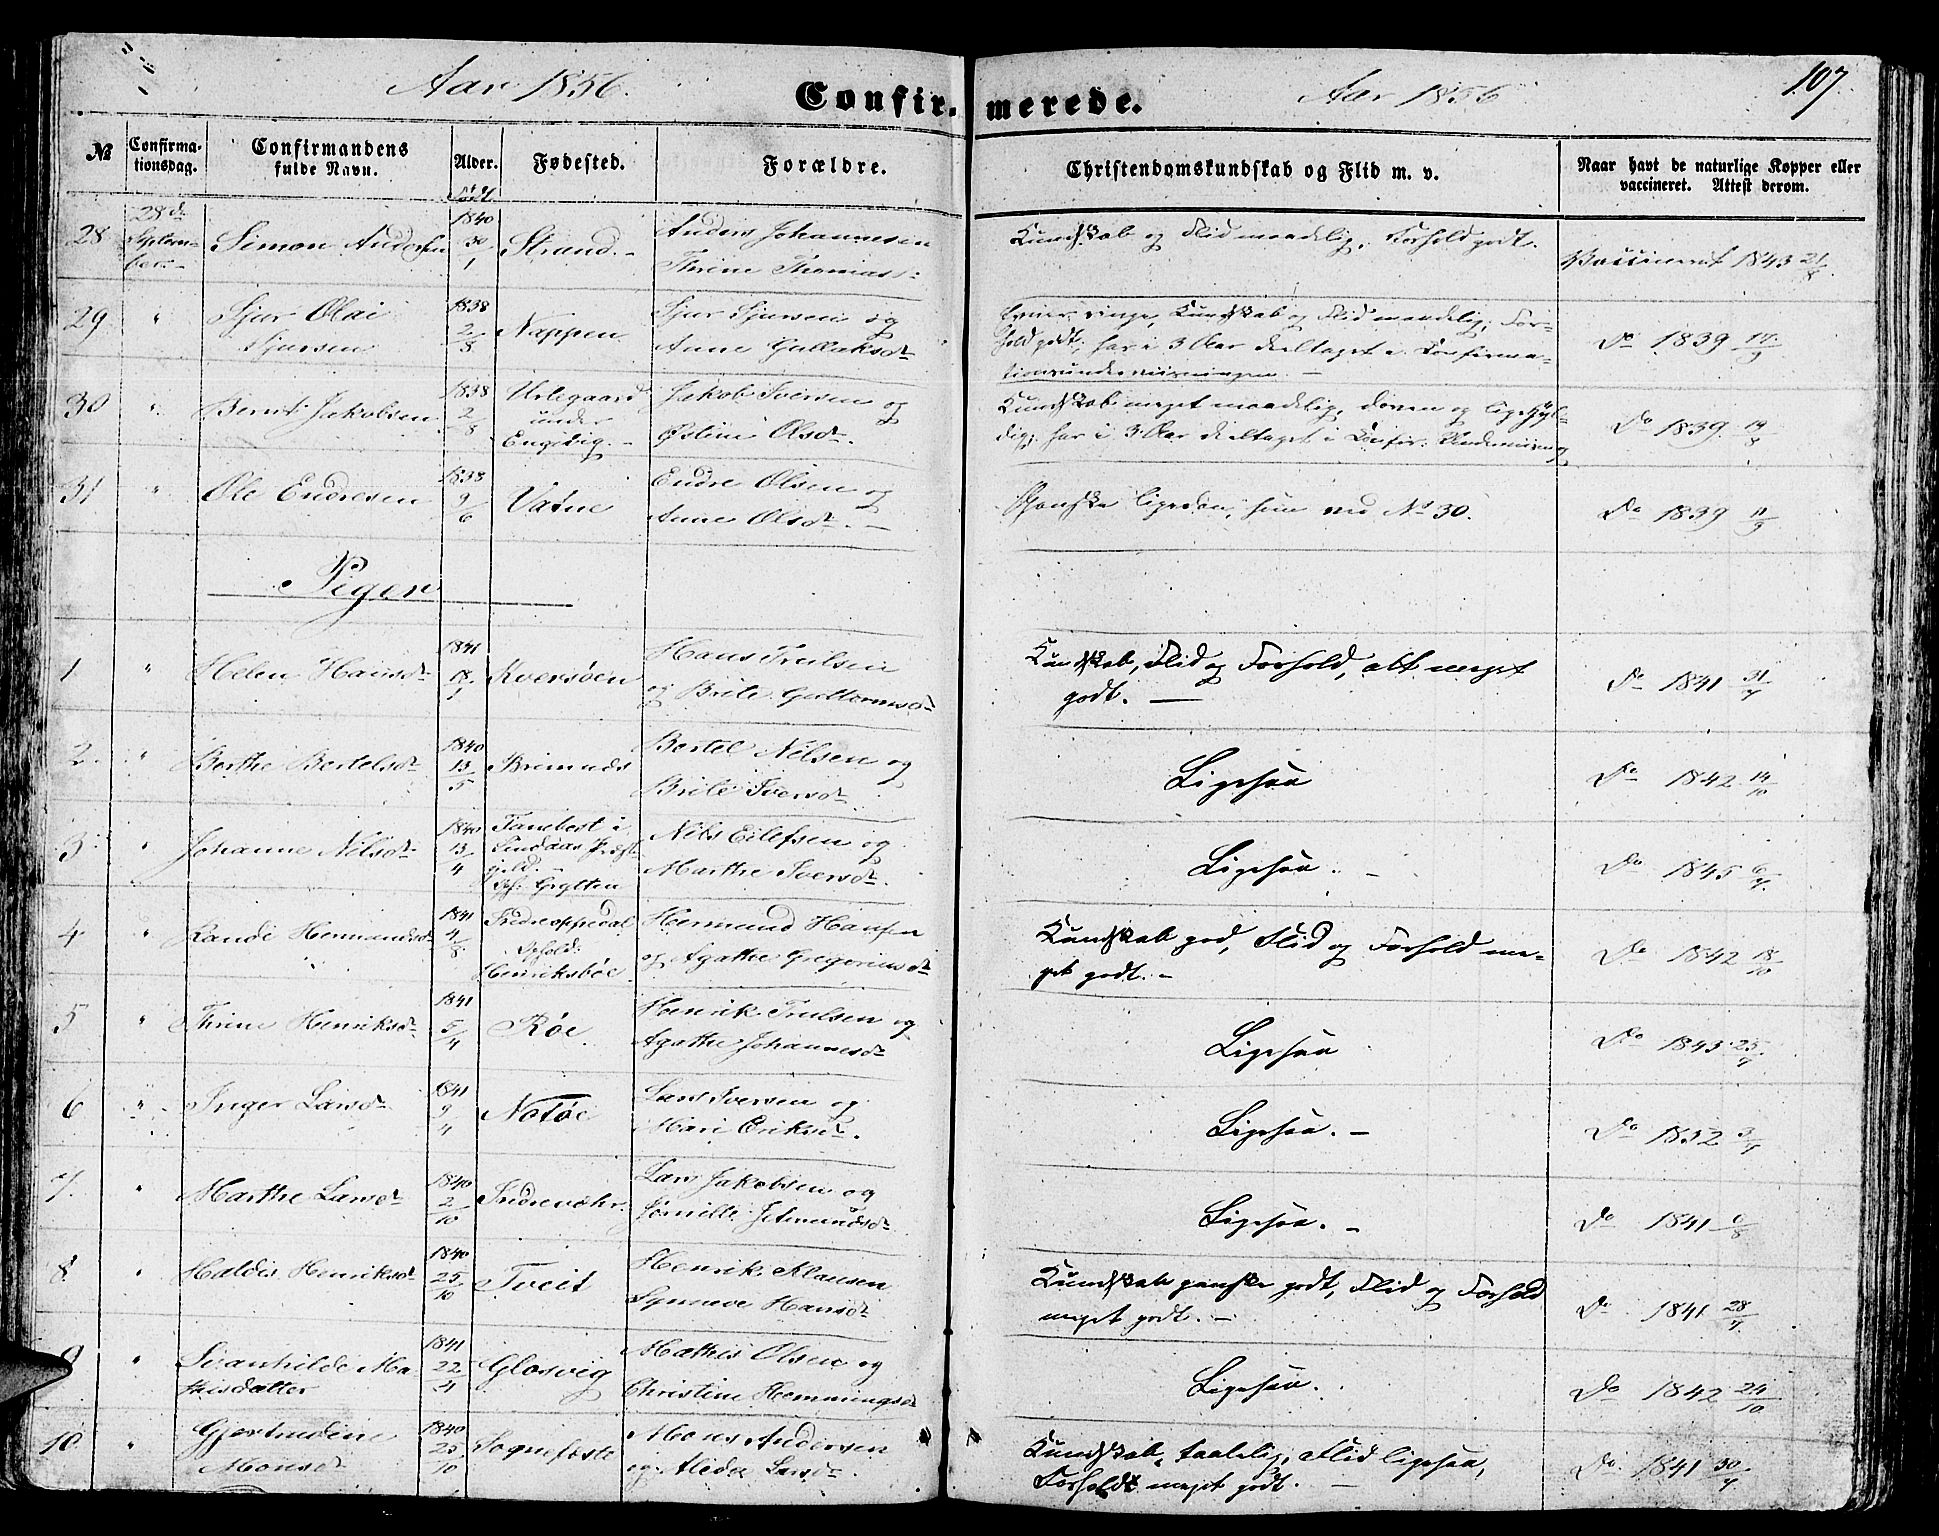 Aar 1856.
Confirmerede.
Aar 1856
107.
№
Confirmationsdag.
Confirmandens fulde Navn.
Alder.
Fødested.
Forældre.
Christendomskundskab og Flid m. v.
Naar havt de naturlige Kopper eller vaccineret. Attest derom.
født
28 28de September Simon Andersen 1840 30/1 Strand. Anders Johannesen Thrine Thomasd: Kundskab og Flid maadelig, Forhold godt. Vaccineret 1843 21/8.
29 " Sjur Olai Sjursen 1838 2/8 Nappen Sjur Sjursen og Anne Gullaksdr Evner ringe, Kundskab og Flid maadelig, Forhold godt; har i 3 Aar deeltaget i Confirmationsundervisningen. Do 1839 17/9
30 " Bernt Jakobsen 1838 2/8 under Engevig. Jakob Iversen og Østine Olsdr. Kundskab meget maadelig, doven og ligegyldig; har i 3 Aar deeltaget i Confir. Undervisning Do 1839
31 " Ole Endresen 1838 9/6 Vatne Endre Olsen og Anne Olsdr. Ganske ligedan, som ved No 30. Do 1839 11/9
Piger
1 " Helen Hansdr 1841 18/1 Kversøen Hans Trulsen og Brite Guttormsdr Kundskab, Flid og Forhold, alt meget godt. Do 1841 31/7
2. " Berthe Bertelsdr 1840 13/5 Brimnæs Bertel Nilsen og Brite Iversdr. Ligesaa Do 1842 14/10
3. " Johanne Nilsdr 1840 13/4 i Lindaas Præstegjeld. Oph: Grytten Nils Eilefsen og Marthe Iversdr. Ligesaa. Do 1845 6/7.
4 " Randi Hermundsdr 1841 4/8. Indreoppedal Ophold: Henriksbøe Hermund Hansen og Agathe Gregoriusdr Kundskab god, Flid og Forhold meget godt. Do 1842 18/10
5 " Thrine Henriksdr 1841 5/4 Røe. Henrik Trulsen og Agathe Johannesdr Ligesaa Do 1843 25/7.
6 " Inger Larsdr 1841 9/4 Notøe Lars Iversen og Mari Eriksdr. Ligesaa. Do 1852 3/7
7. " Marthe Larsdr 1840 2/10 Indrevær. Lars Jakobsen og Jetmundsdr Ligesaa. Do 1841 6/8
8. " Haldis Henriksdr 1840 25/10 Tveit Henrik Klausen Synneve Hansdr Kundskab ganske godt, Flid og Forhold meget godt. Do 1841 28/7.
9 " Svanhilde Mathisdatter 1841 22/4 Glosvig Mathis Olsen og Christine Hemmingsdr Ligesaa. Do 1842 24/10
10 " Gjertrudine Monsdr 1840 25/10 Sognefæste Mons Andersen og Alida Larsdr. Kundskab taalelig, Flid ligesaa, Forholdt meget godt. Do. 1841 30/7